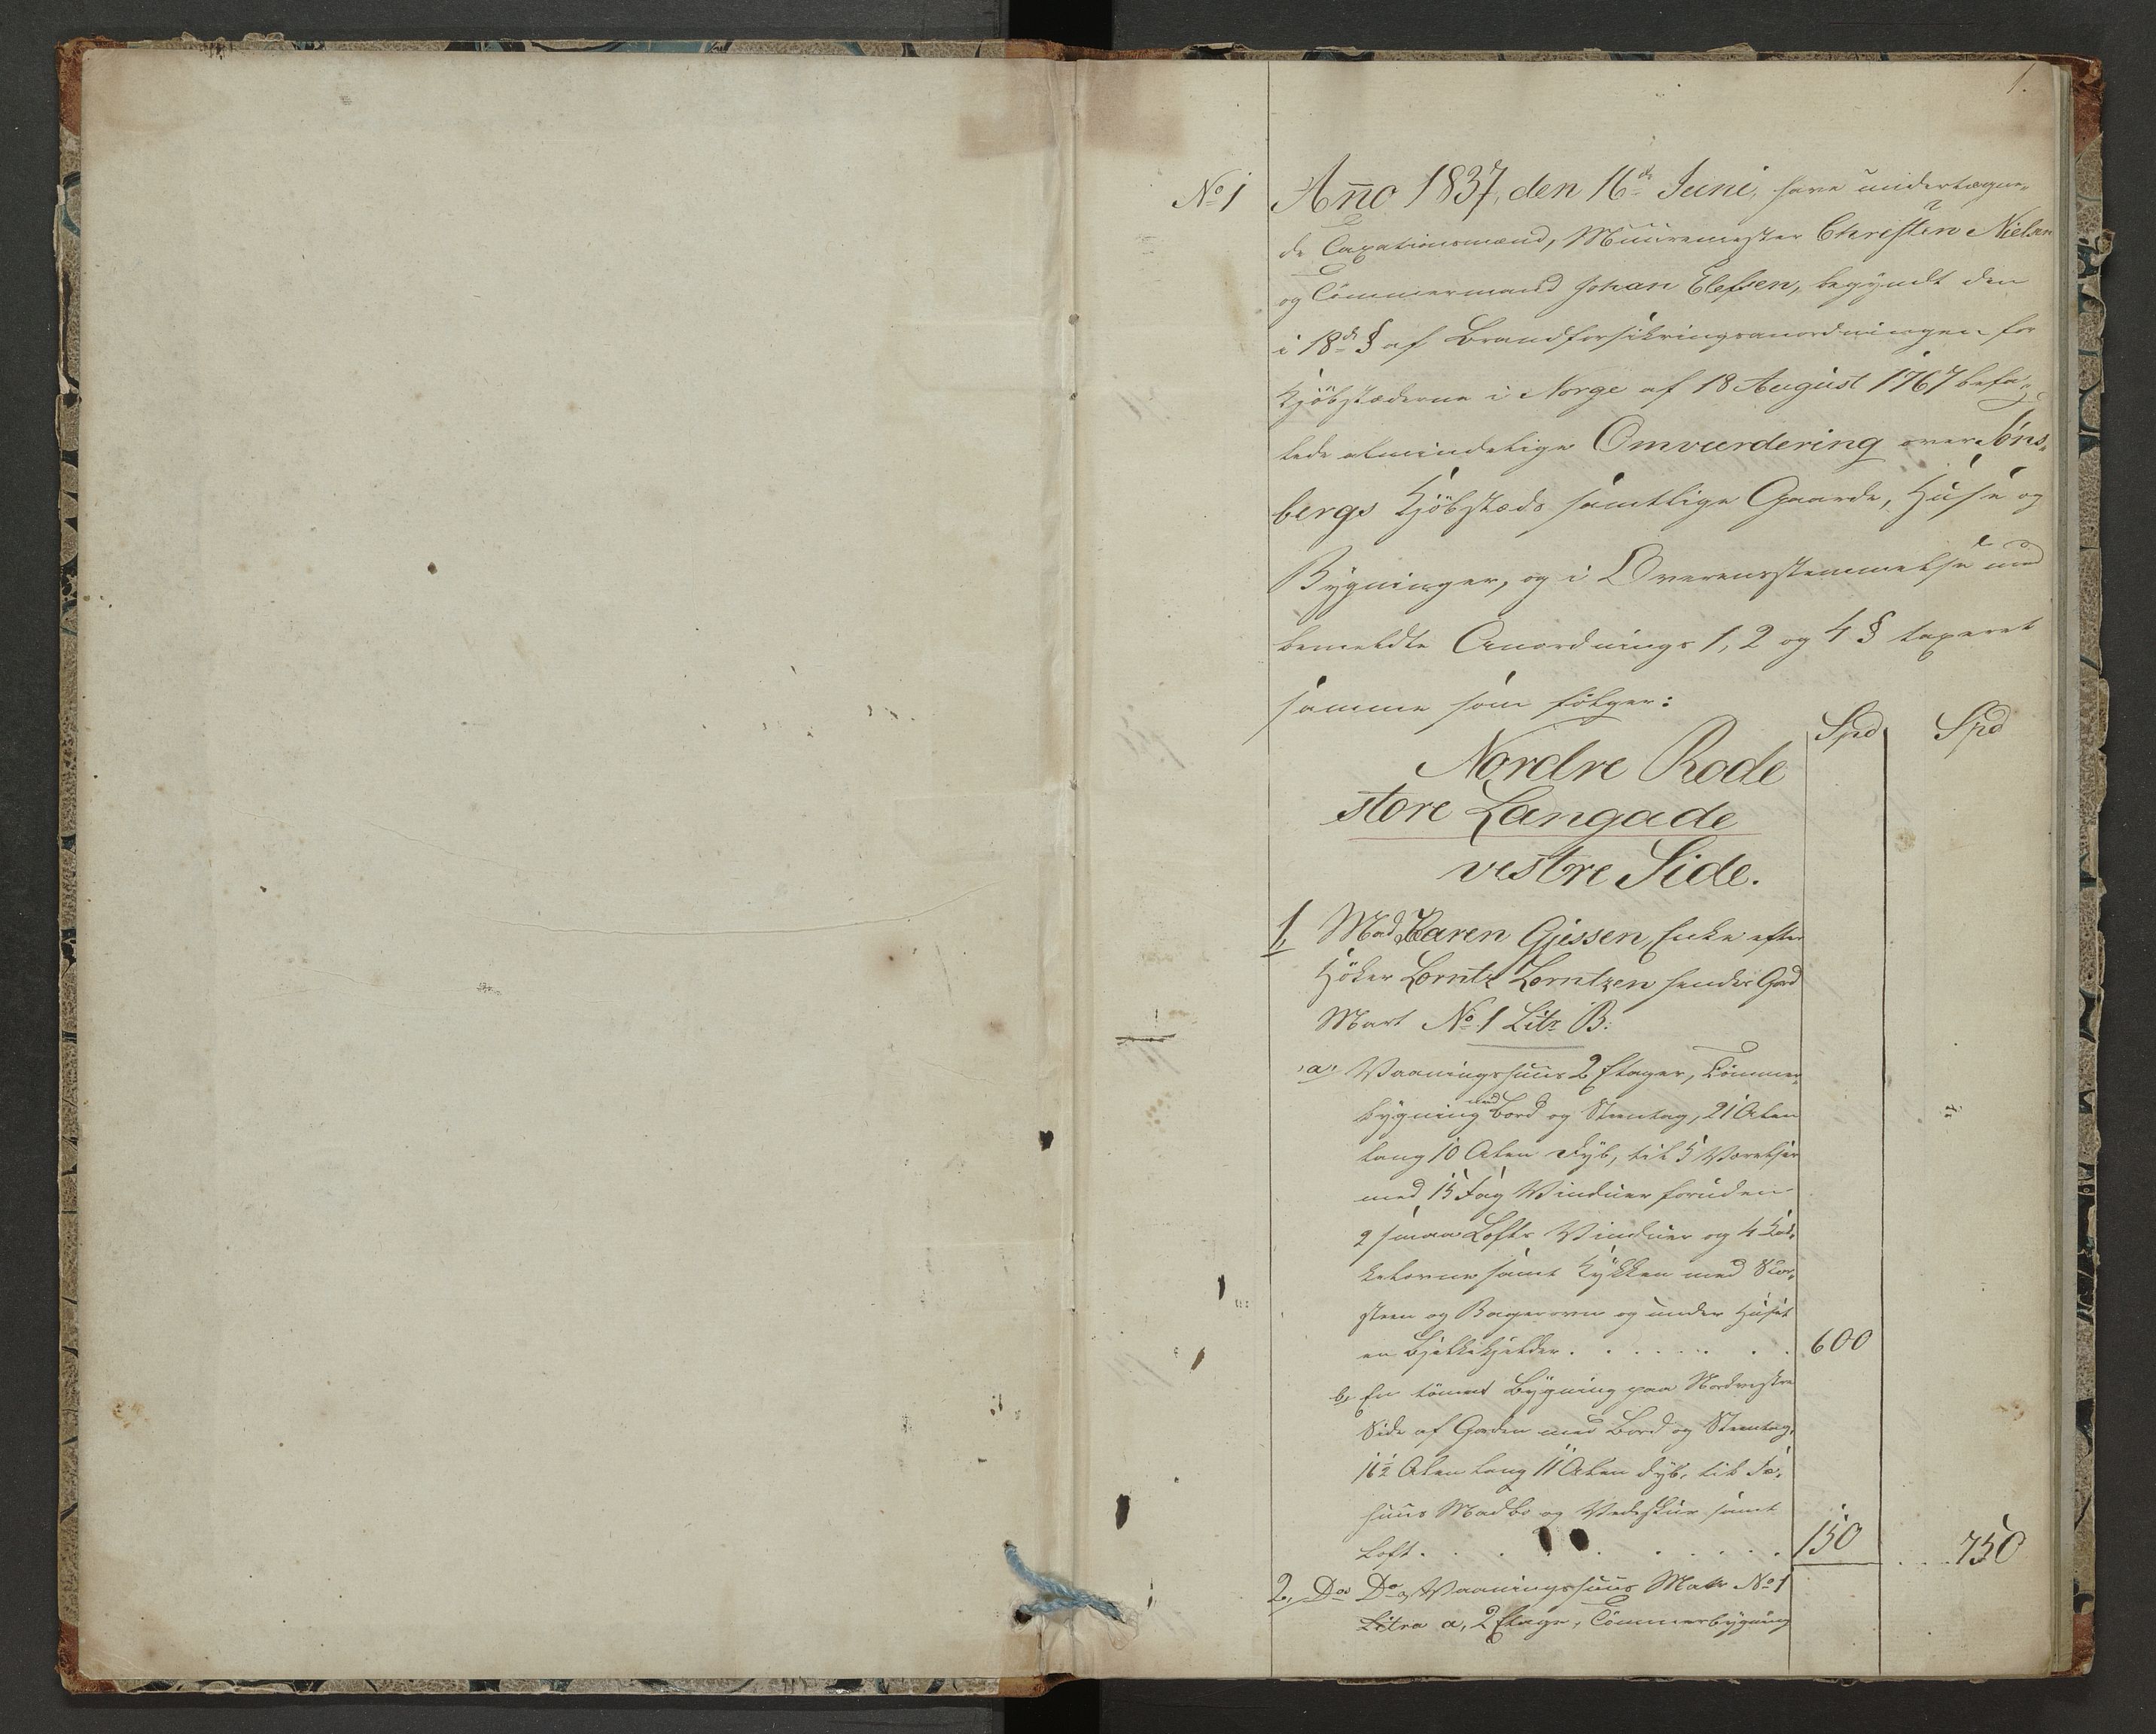 1.
No 1 Anno 1837, den 16de Juni, have undertegne-
de Taxationsmænd, Muuremester Christen Nielsen
og Tömmermand Johan Elefsen, begyndt den
i 18de § af Brandforsikringsanordningen for
Kjöbstæderne i Norge af 18 August 1767 befa-
lede almindelige Omvurdering over Töns-
bergs Kjöbstæds samtlige Gaarde, Huse og
Bygninger, og i Overensstemmelse med
bemeldte Anordnings 1, 2 og 4 § taxeret
samme som fölger:
Spd Spd
Nordre Rode
store Langgade
vestre Side.
1, Mad Karen Gjessen, Enke efter
Höker Lorntz Lorntzen hendes Gård
Mart No 1 Litr B:
a, Vaaningshuus 2 Etager, Tömmer-
bygning med Bord og Steentag, 21 Alen
lang 10 Alen dyb, til 5 Værelser
med 15 Fag Vinduer foruden
2 smaa Lofts Vinduer og 4 Kak-
kelovne samt Kjökken med Skor-
steen og Bagerovn og under Huset
en Bjelkekjelder . . . . . . . . 600
b, En tömret Bygning paa Nordvestre
Side af Gården med Bord og Steentag,
16½ Alen lang 11 Alen dyb, til Fæ-
huus Madbo og Vedskur samt
Loft . . . . . . . . . 150 . . . 750
2, Do Do Vaaningshuus Matr No 1
Litra a, 2 Etage, Tömmerbygning